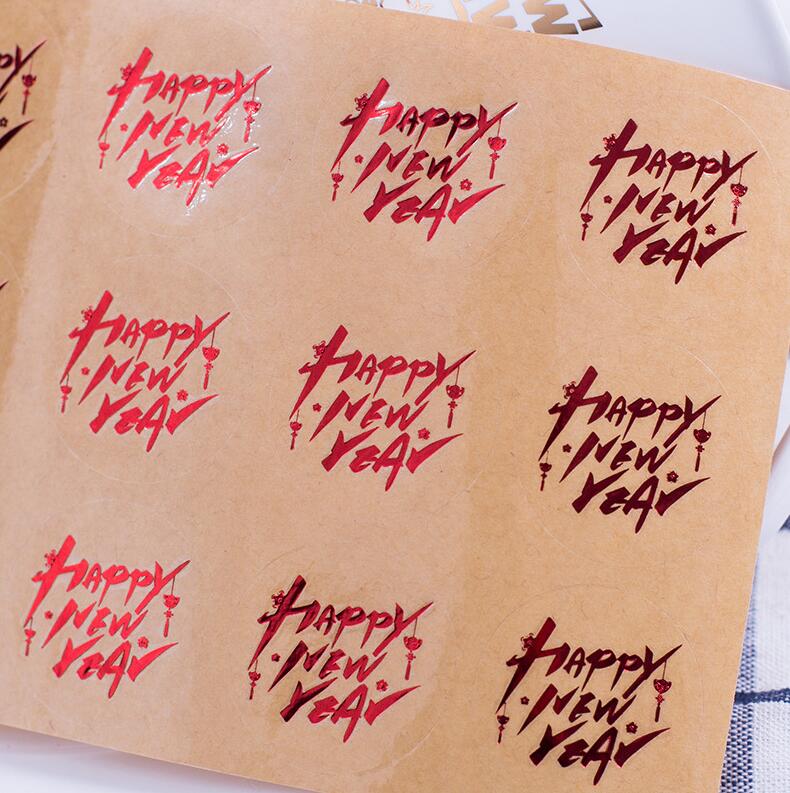 HAPPY
NEW
YEAR
HAPPY
NEW
YEAR
HAPPY
NEW
YEAR
HAPPY
NEW
YEAR
HAPPY
NEW
YEAR
HAPPY
NEW
YEAR
HAPPY
NEW
YEAR
HAPPY
NEW
YEAR
HAPPY
NEW
YEAR